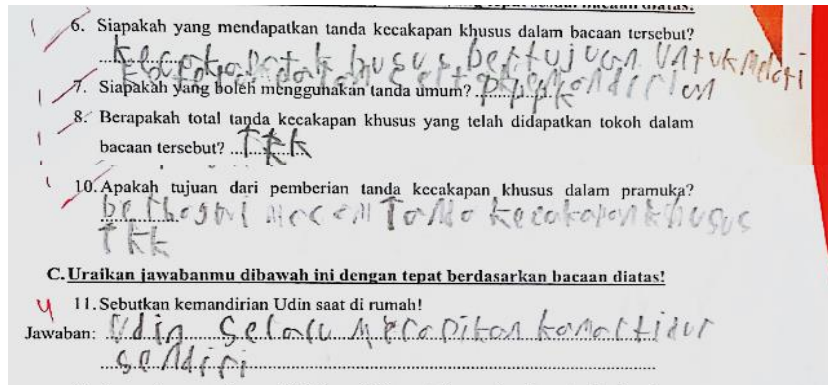 6. Siapakah yang mendapatkan tanda kecakapan khusus dalam bacaan tersebut?
husus bertujuan untuk melati
7. Siapakah yang boleh menggunakan tanda umum?
8. Berapakah total tanda kecakapan khusus yang telah didapatkan tokoh dalam
bacaan tersebut? TKK
10. Apakah tujuan dari pemberian tanda kecakapan khusus dalam pramuka?
berbagai macam Tanda kecakapan khusus
TKK
C. Uraikan jawabanmu dibawah ini dengan tepat berdasarkan bacaan diatas!
4 11. Sebutkan kemandirian Udin saat di rumah!
Jawaban: Udin Selalu Merapikan kamar tidur
sendiri